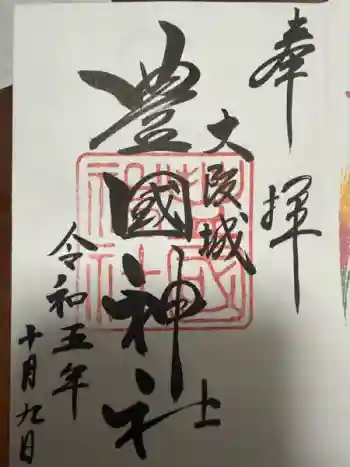 奉拝
大阪城
豊國神社
令和五年
十月九日